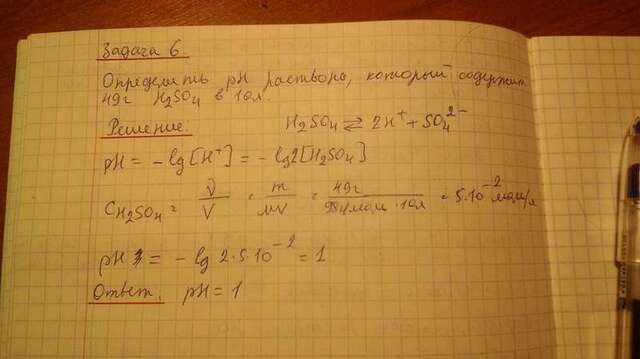 Задача 6.
Определить pH раствора, который содержит
49г H₂SO₄ в 10л.
Решение: H₂SO₄ ⇄ 2H⁺ + SO₄²⁻
pH = -lg[H⁺] = -lg2[H₂SO₄]
C H₂SO₄ = ν/V = m/MV = 49г/ г/моль · 10л = 5·10⁻² моль/л
pH = -lg 2·5·10⁻² = 1
Ответ: pH = 1